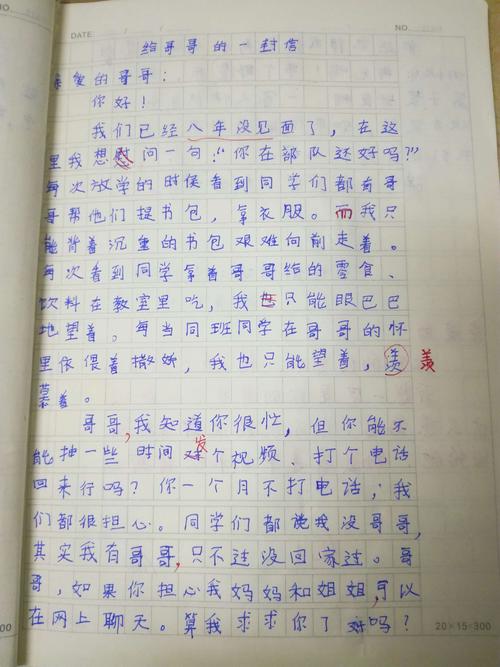 DATE: / /
NO.
给哥哥的一封信
亲爱的哥哥：
你好！
我们已经八年没见面了，在这
里我想慰问一句：“你在部队还好吗？”
每次放学的时候看到同学们都有哥
哥帮他们提书包，拿衣服。而我只
能背着沉重的书包艰难向前走着。
每次看到同学拿着哥哥给的零食、
饮料在教室里吃，我也只能眼巴巴
地望着。每当同班同学在哥哥的怀
里依偎着撒娇，我也只能望着，羡 羡
慕着。
哥哥，我知道你很忙，但你能不
能抽一些时间发个视频、打个电话
回来行吗？你一个月不打电话，我
们都很担心。同学们都说我没哥哥，
其实我有哥哥，只不过没回家过。哥
哥，如果你担心我妈妈和姐姐，可以
在网上聊天。算我求求你了好吗？
00
20×15=300